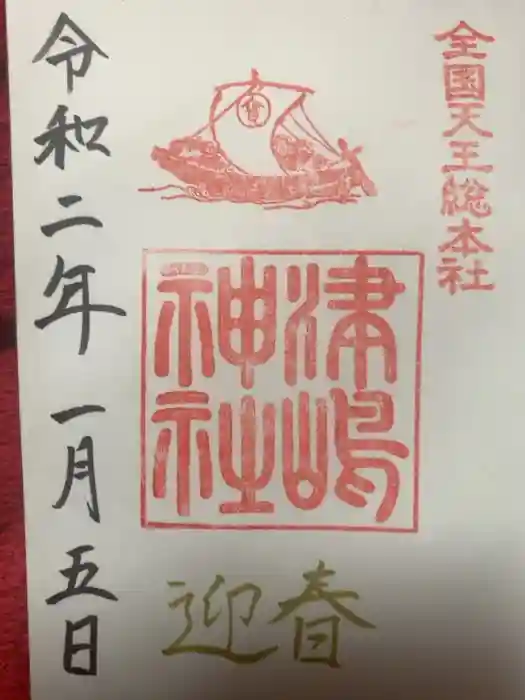 全国天王総本社
宝
津嶋
神社
迎春
令和二年一月五日